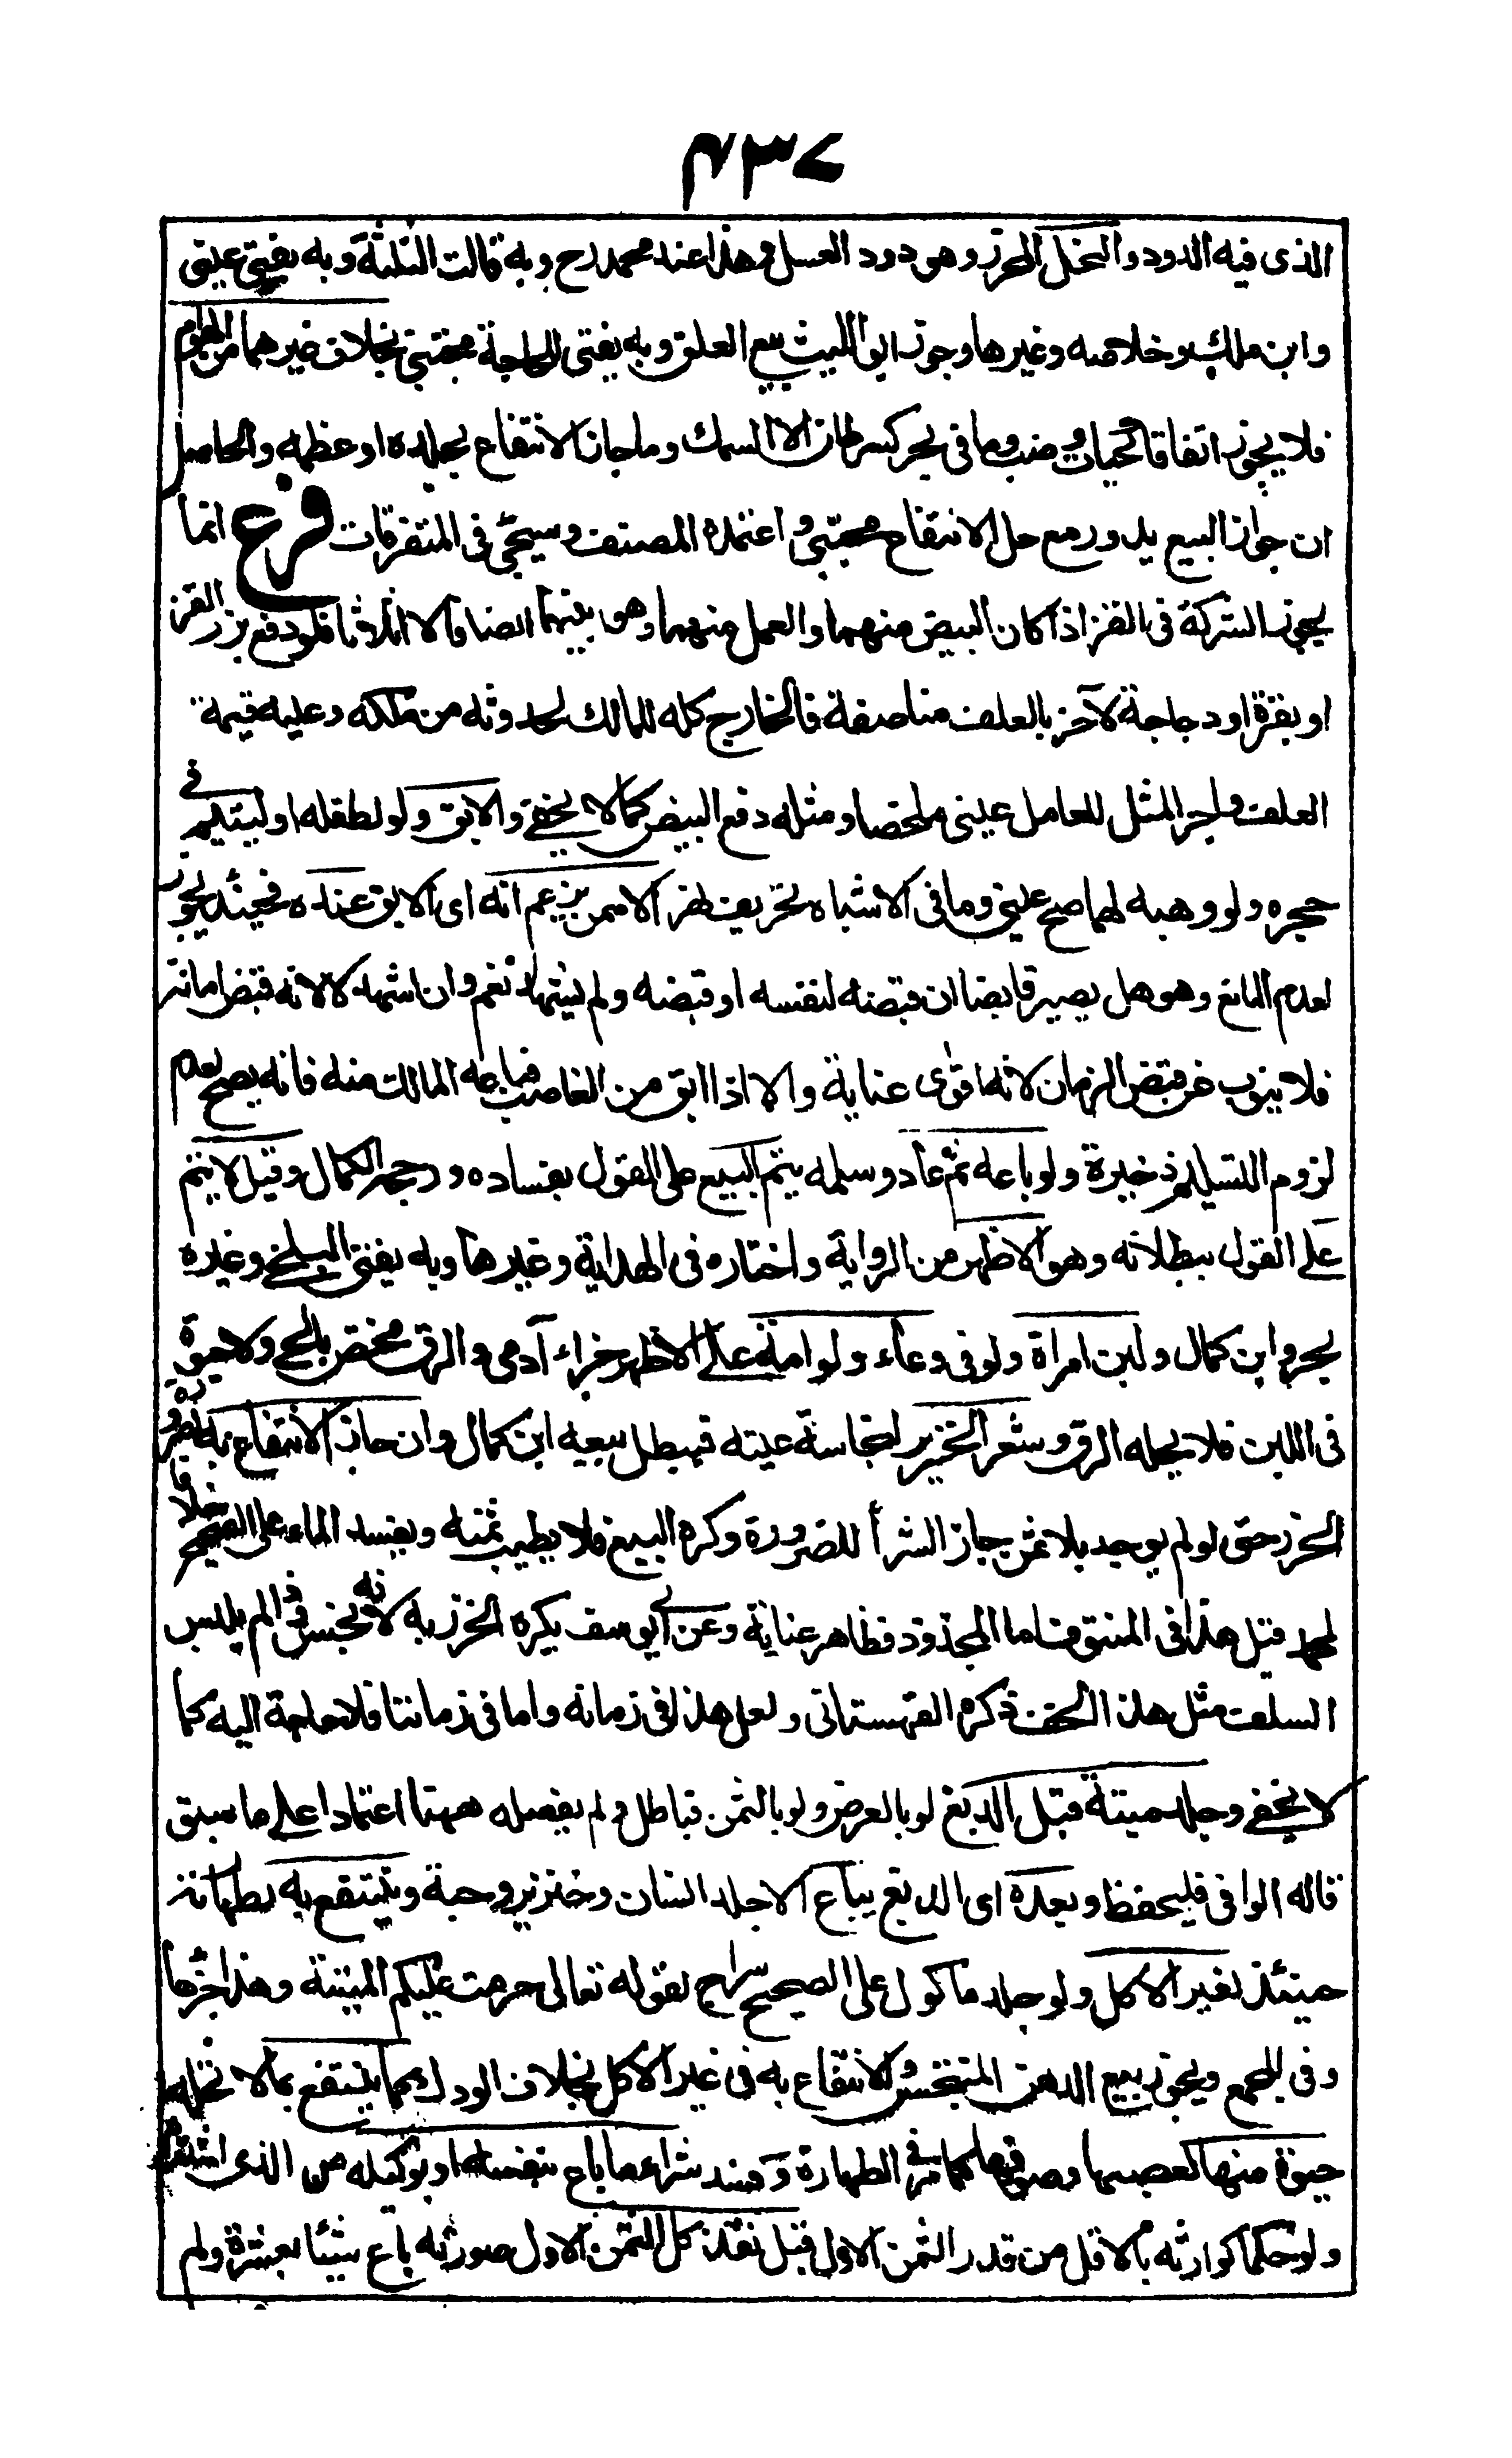 ٤٣٧
الذى فيه الدود والنحل المحرز وهو دود العسل وهذا عند محمد رح وبه قالت الثلثة وبه يفتى عينى
وابن ملك وخلاصه وغيرها وجوز ابو الليث بيع العلق وبه يفتى للحاجة مجتبى بخلاف غيرهما من الهوام
فلا يجوز اتفاقا كحيات وضب وما فى بحر كسرطان الا السمك وما جاز الانتفاع بجلده او عظمه والحاصل
ان جواز البيع يدور مع حل الانتفاع مجتبى واعتمده المصنف وسيجئ فى المتفرقات فرع انما
يجوز الشركة فى القز اذا كان البيض منهما والعمل منهما وهو بينهما انصافا لا اثلاثا فلو دفع بزر القز
او بقرة او دجاجة لآخر بالعلف مناصفة فالخارج كله للمالك لحدوثه من ملكه وعليه قيمة
العلف واجر المثل للعامل عينى ملخصا ومثله دفع البيض كما لا يخفى والابق ولو لطفله او ليتيم فى
حجره ولو وهبه لهما صح عينى وما فى الاشباه تحريف نهر الا ممن يزعم انه اى الابق عنده فحينئذ يجوز
لعدم المانع وهو هل يصير قابضا ان قبضه لنفسه او قبضه ولم يشهد نعم وان اشهد لا لانه قبض امانة
فلا ينوب عن قبض الزمان لانه اقوى عناية والا اذا ابق من الغاصب فباعه المالك منه فانه يصح لعدم
لزوم التسليم ذخيرة ولو باعه ثم عاد وسلمه يتم البيع على القول بفساده ورجحه الكمال وقيل لا يتم
على القول ببطلانه وهو الاظهر من الرواية واختاره فى الهداية وغيرها وبه يفتى البلخى وغيره
بحر وابن كمال ولبن امراة ولو فى وعاء ولو امة على الاظهر جزاء آدمى والرق مختص بالحى ولا حيوة
فى اللبن فلا يحله الرق وشعر الخنزير لنجاسة عينه فيبطل بيعه ابن كمال وان جاز الانتفاع به لضرورة
الخرز حتى لو لم يوجد بلا ثمن جاز الشرأ للضرورة وكره البيع فلا يطيب ثمنه ويفسد الماء على الصحيح خلافا
لمحمد قيل هذا فى المنتوف اما المجذوذ فطاهر عناية وعن ابى يوسف يكره الخرز به لانه نجس ولذا لم يلبس
السلف مثل هذا الخف ذكره القهستانى ولعل هذا فى زمانه واما فى زماننا فلا حاجة اليه كما
لا يخفى وجلد ميتة قبل الدبغ لو بالعرض ولو بالثمن فباطل ولم يفصله ههنا اعتمادا على ما سبق
قاله الوافى فليحفظ وبعده اى الدبغ يباع الا جلد انسان وخنزير وحية وينتفع به لطهارته
حينئذ لغير الاكل ولو جلد ماكول على الصحيح سراج لقوله تعالى حرمت عليكم الميتة وهذا جزءها
وفى المجمع ويجوز بيع الدهن المتنجس والانتفاع به فى غير الاكل بخلاف الودك كما ينتفع بما لا تحله
حيوة منها كعصبها وصوفها كما مر فى الطهارة وفسد شراء ما باع بنفسه او بوكيله من الذى اشتراه
ولو حكما كوارثه بالاقل من قدر الثمن الاول قبل نقد كل الثمن الاول صورته باع شيئا بعشرة ولم